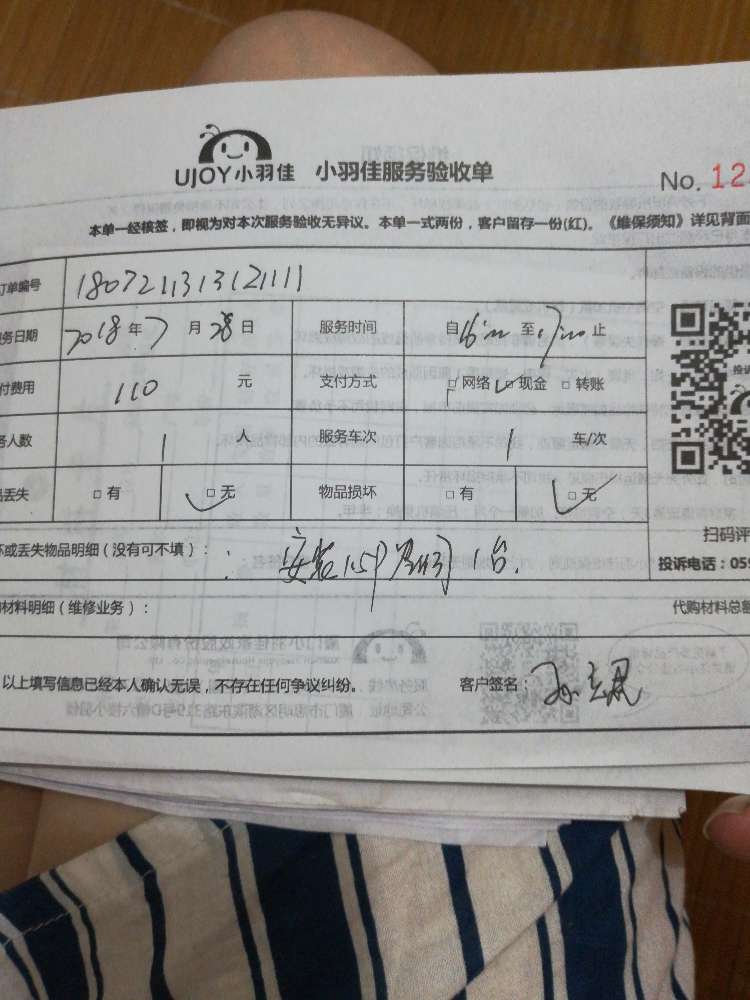 UJOY小羽佳 小羽佳服务验收单
No. 12
本单一经核签，即视为对本次服务验收无异议。本单一式两份，客户留存一份(红)。《维保须知》详见背面
订单编号 1807211313121111
务日期 2018年7月28日 服务时间 自16:00至17:00止
付费用 110 元 支付方式 □网络 □现金 □转账
务人数 1 人 服务车次 1 车/次
品丢失 □有 □无 物品损坏 □有 □无
坏或丢失物品明细（没有可不填）： 安装1.5P 1台.
扫码评
投诉电话：059
购材料明细（维修业务）： 代购材料总额
以上填写信息已经本人确认无误，不存在任何争议纠纷。 客户签名：